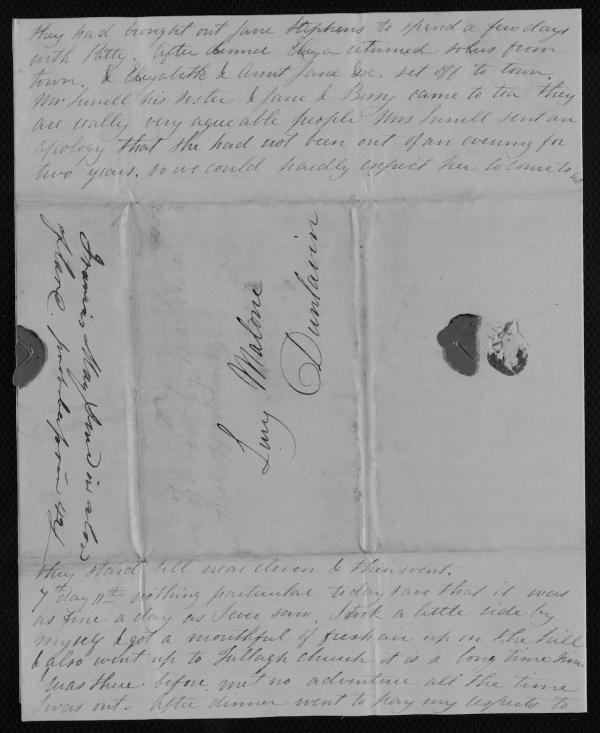 they had brought out Jane Stephens to spend a few days
with Patty. After dinner Eliza returned solus from
town. & Elizabeth & Aunt Jane &c. set off to town.
Mr his sister & Jane & Bessy came to tea they
are really very agreeable people Mrs sent an
apology that she had not been out of an evening for
two years. so we could hardly expect her to come to us
Lucy Malone
Dunlavin
they staid till near eleven & then went.
7th day 11th nothing particular today save that it was
as fine a day as I ever saw. I took a little ride by
myself & got a mouthful of fresh air up on the hill
& also went up to Tullagh church it is a long time since
I was there before. met no adventure all the time
I was out. After dinner went to pay my respects to